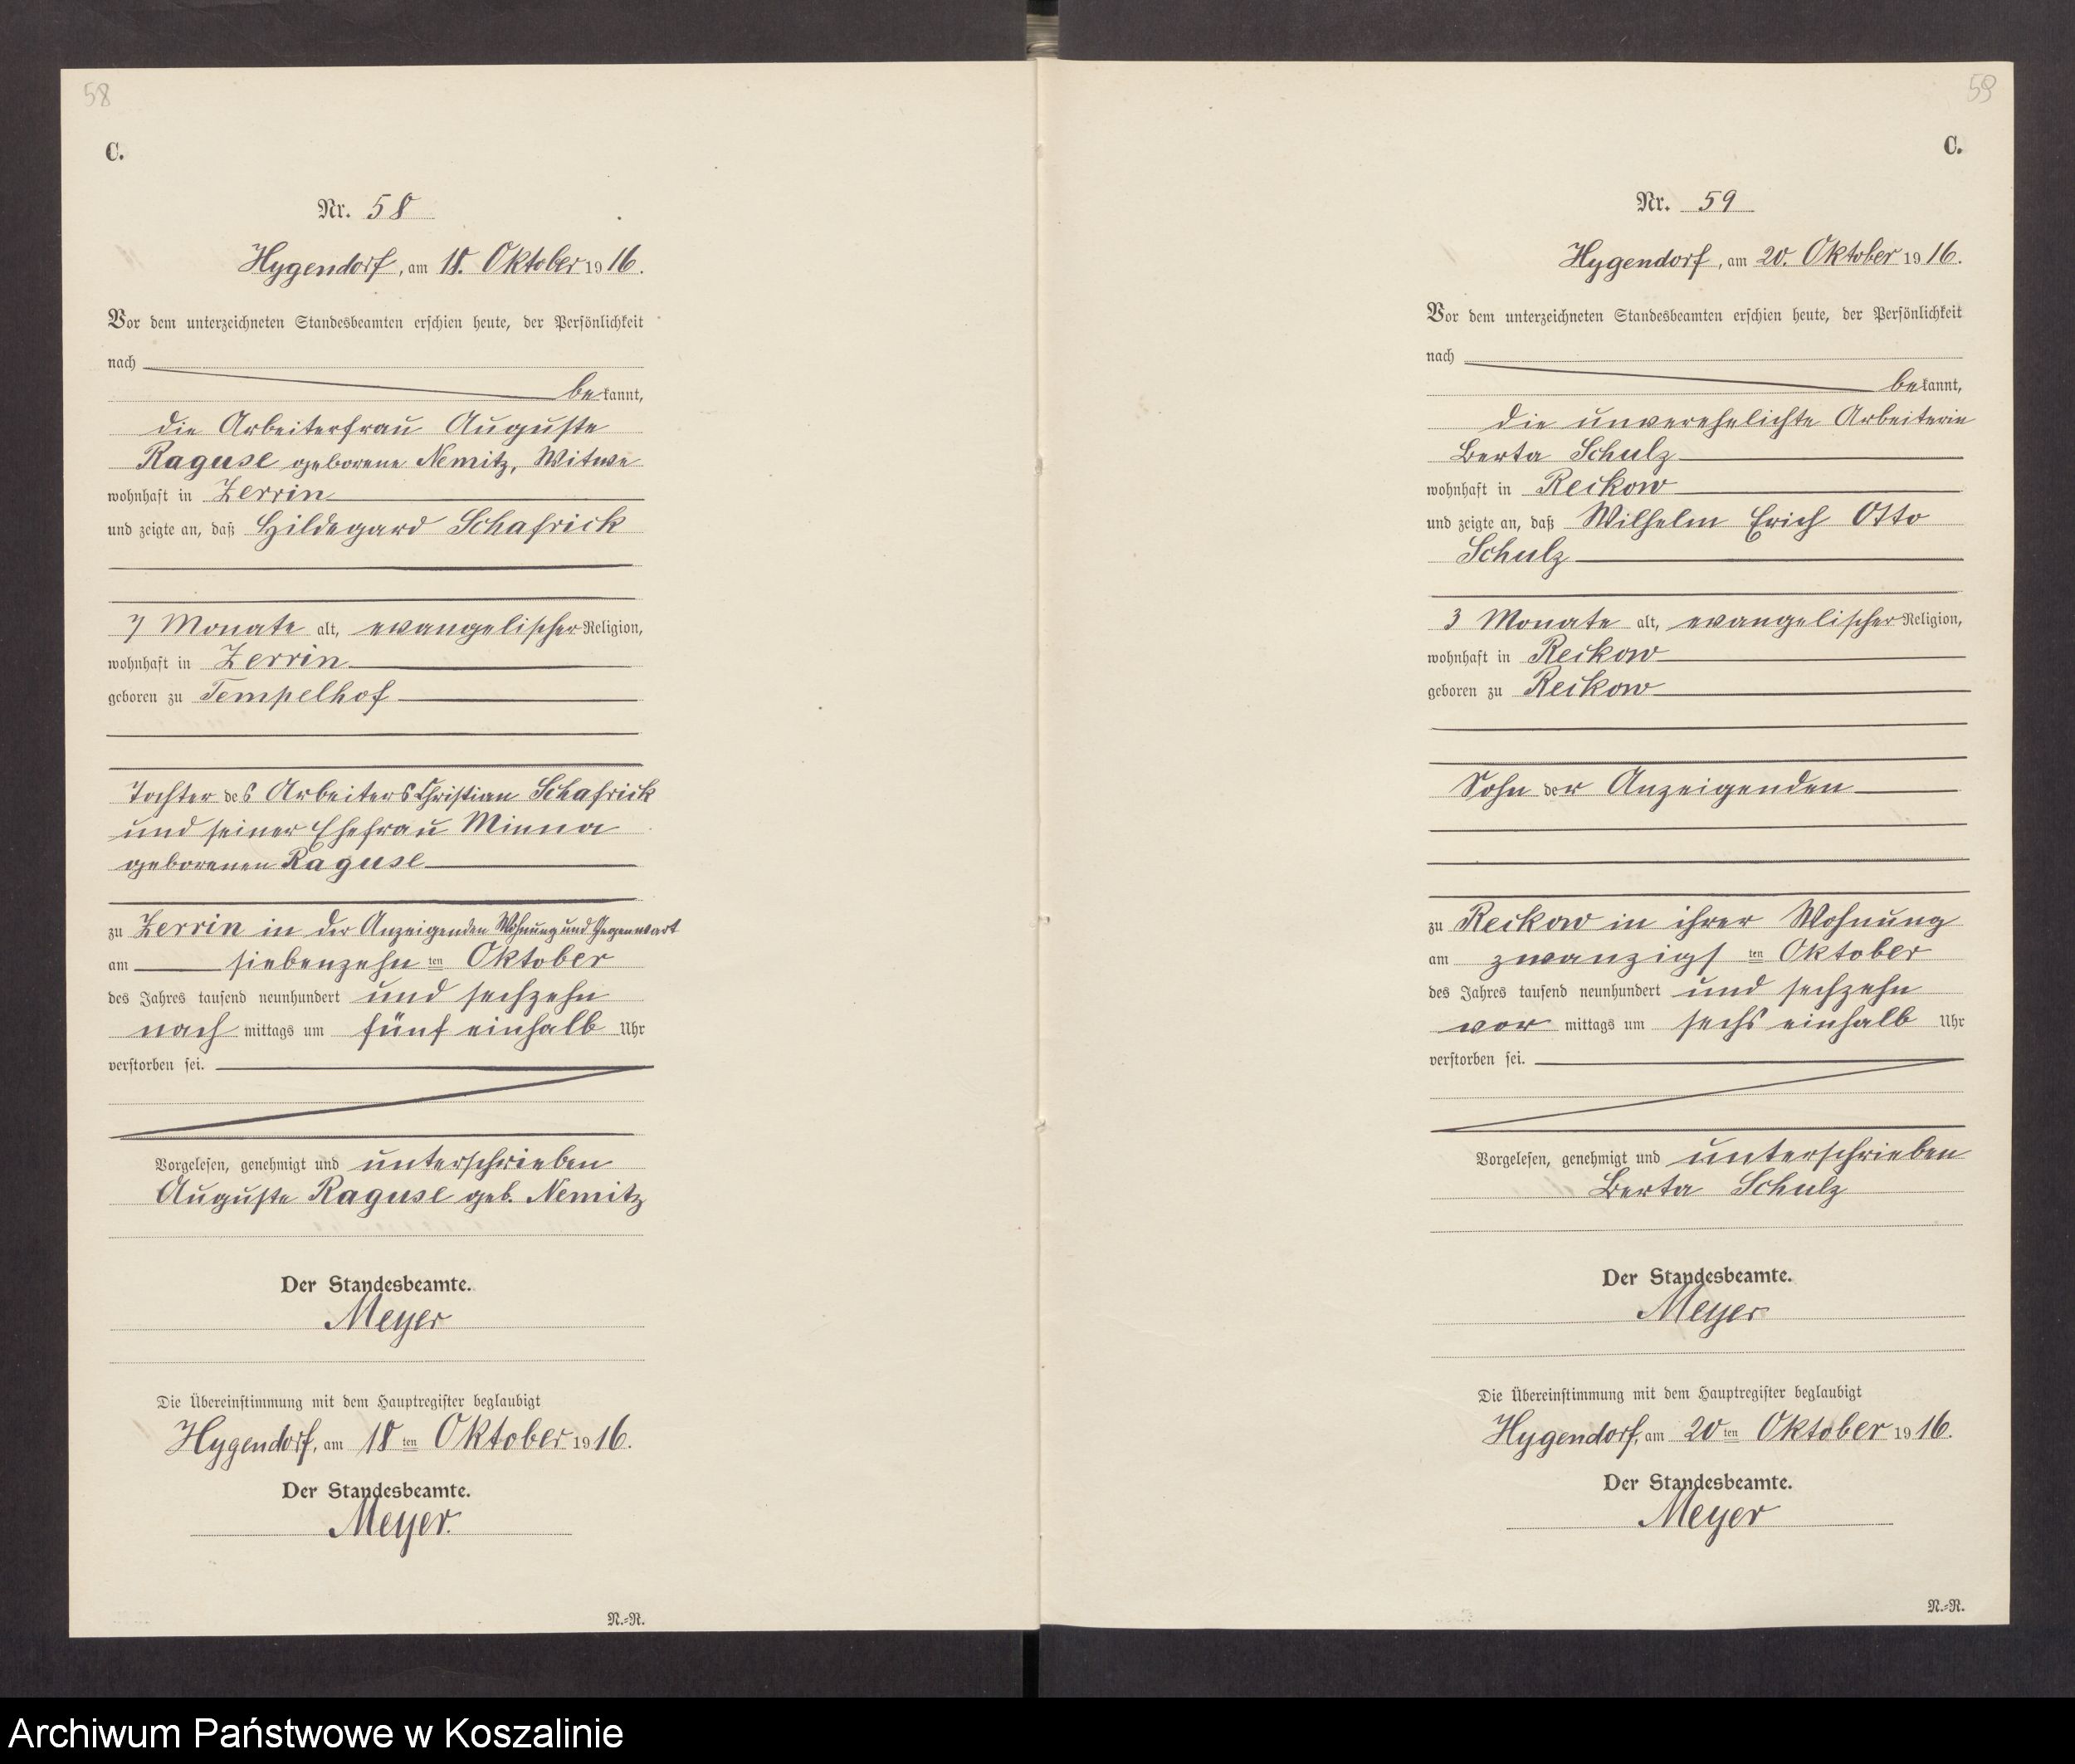 58
C.
Nr. 58
Hygendorf, am 18. Oktober 1916.
Vor dem unterzeichneten Standesbeamten erschien heute, der Persönlichkeit
nach
bekannt,
die Arbeiterfrau Auguste
Raguse geborene Nemitz, Witwe
wohnhaft in Zerrin
und zeigte an, daß Hildegard Schafrick
7 Monate alt, evangelischer Religion,
wohnhaft in Zerrin
geboren zu Tempelhof
Tochter des Arbeiters Christian Schafrick
und seiner Ehefrau Minna
geborenen Raguse
zu Zerrin in der Anzeigenden Wohnung und Gegenwart
am siebenzehnten Oktober
des Jahres tausend neunhundert und sechzehn
nachmittags um fünf einhalb Uhr
verstorben sei.
Vorgelesen, genehmigt und unterschrieben
Auguste Raguse geb. Nemitz
Der Standesbeamte.
Meyer
Die Übereinstimmung mit dem Hauptregister beglaubigt
Hygendorf, am 18ten Oktober 1916.
Der Standesbeamte.
Meyer.
N.-R.
59
C.
Nr. 59
Hygendorf, am 20. Oktober 1916.
Vor dem unterzeichneten Standesbeamten erschien heute, der Persönlichkeit
nach
bekannt,
die unverehelichte Arbeiterin
Berta Schulz
wohnhaft in Reckow
und zeigte an, daß Wilhelm Erich Otto
Schulz
3 Monate alt, evangelischer Religion,
wohnhaft in Reckow
geboren zu Reckow
Sohn der Anzeigenden
zu Reckow in ihrer Wohnung
am zwanzigsten Oktober
des Jahres tausend neunhundert und sechzehn
vormittags um sechs einhalb Uhr
verstorben sei.
Vorgelesen, genehmigt und unterschrieben
Berta Schulz
Der Standesbeamte.
Meyer
Die Übereinstimmung mit dem Hauptregister beglaubigt
Hygendorf, am 20ten Oktober 1916.
Der Standesbeamte.
Meyer
N.-R.
Archiwum Państwowe w Koszalinie